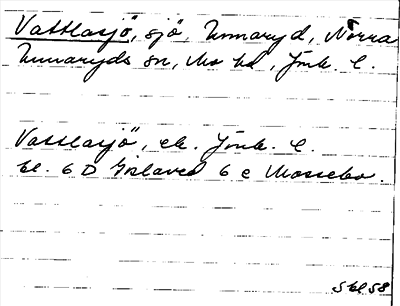 Vattlasjö, sjö, Unnaryd, Norra
Unnaryds sn, Mo hd, Jönk. l.
Vattlasjö, ek. Jönk. l.
bl. 6 D Gislaved 6 e Mossebo.
Skl 58